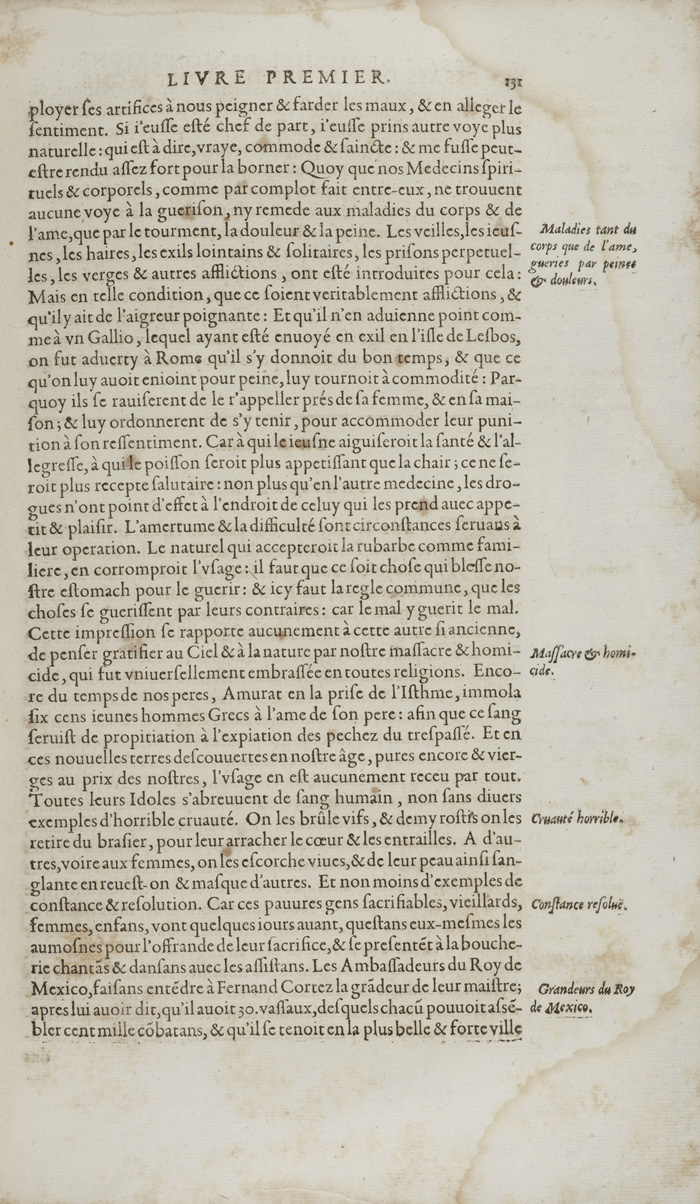 LIVRE PREMIER. 131
ployer ſes artifices à nous peigner & farder les maux, & en alleger le
ſentiment. Si i'euſſe eſté chef de part, i'euſſe prins autre voye plus
naturelle: qui eſt à dire, vraye, commode & ſaincte: & me fuſſe peut-
eſtre rendu aſſez fort pour la borner: Quoy que nos Medecins ſpiri-
tuels & corporels, comme par complot fait entre-eux, ne trouuent
aucune voye à la gueriſon, ny remede aux maladies du corps & de
l'ame, que par le tourment, la douleur & la peine. Les veilles, les ieuſ-
nes, les haires, les exils lointains & ſolitaires, les priſons perpetuel-
les, les verges & autres afflictions, ont eſté introduites pour cela:
Mais en telle condition, que ce ſoient veritablement afflictions, &
qu'il y ait de l'aigreur poignante: Et qu'il n'en aduienne point com-
me à vn Gallio, lequel ayant eſté enuoyé en exil en l'iſle de Leſbos,
on fut aduerty à Rome qu'il s'y donnoit du bon temps, & que ce
qu'on luy auoit enioint pour peine, luy tournoit à commodité: Par-
quoy ils ſe rauiſerent de le r'appeller prés de ſa femme, & en ſa mai-
ſon; & luy ordonnerent de s'y tenir, pour accommoder leur puni-
tion à ſon reſſentiment. Car à qui le ieuſne aiguiſeroit la ſanté & l'al-
legreſſe, à qui le poiſſon ſeroit plus appetiſſant que la chair; ce ne ſe-
roit plus recepte ſalutaire: non plus qu'en l'autre medecine, les dro-
gues n'ont point d'effet à l'endroit de celuy qui les prend auec appe-
tit & plaiſir. L'amertume & la difficulté ſont circonſtances ſeruans à
leur operation. Le naturel qui accepteroit la rubarbe comme fami-
liere, en corromproit l'vſage: il faut que ce ſoit choſe qui bleſſe no-
ſtre eſtomach pour le guerir: & icy faut la regle commune, que les
choſes ſe gueriſſent par leurs contraires: car le mal y guerit le mal.
Cette impreſſion ſe rapporte aucunement à cette autre ſi ancienne,
de penſer gratifier au Ciel & à la nature par noſtre maſſacre & homi-
cide, qui fut vniuerſellement embraſſée en toutes religions. Enco-
re du temps de nos peres, Amurat en la priſe de l'Iſthme, immola
ſix cens ieunes hommes Grecs à l'ame de ſon pere: afin que ce ſang
ſeruiſt de propitiation à l'expiation des pechez du treſpaſſé. Et en
ces nouuelles terres deſcouuertes en noſtre âge, pures encore & vier-
ges au prix des noſtres, l'vſage en eſt aucunement receu par tout.
Toutes leurs Idoles s'abreuuent de ſang humain, non ſans diuers
exemples d'horrible cruauté. On les brûle vifs, & demy roſtis on les
retire du braſier, pour leur arracher le cœur & les entrailles. A d'au-
tres, voire aux femmes, on les eſcorche viues, & de leur peau ainſi ſan-
glante en reueſt-on & maſque d'autres. Et non moins d'exemples de
conſtance & reſolution. Car ces pauures gens ſacrifiables, vieillards,
femmes, enfans, vont quelques iours auant, queſtans eux-meſmes les
aumoſnes pour l'offrande de leur ſacrifice, & ſe preſentẽt à la bouche-
rie chantãs & danſans auec les aſſiſtans. Les Ambaſſadeurs du Roy de
Mexico, faiſans entẽdre à Fernand Cortez la grãdeur de leur maiſtre;
apres lui auoir dit, qu'il auoit 30. vaſſaux, deſquels chacũ pouuoit aſsẽ-
bler cent mille cõbatans, & qu'il ſe tenoit en la plus belle & forte ville
Maladies tant du
corps que de l'ame,
gueries par peines
& douleurs.
Maſſacre & homi-
cide.
Cruauté horrible.
Conſtance reſoluë.
Grandeurs du Roy
de Mexico.